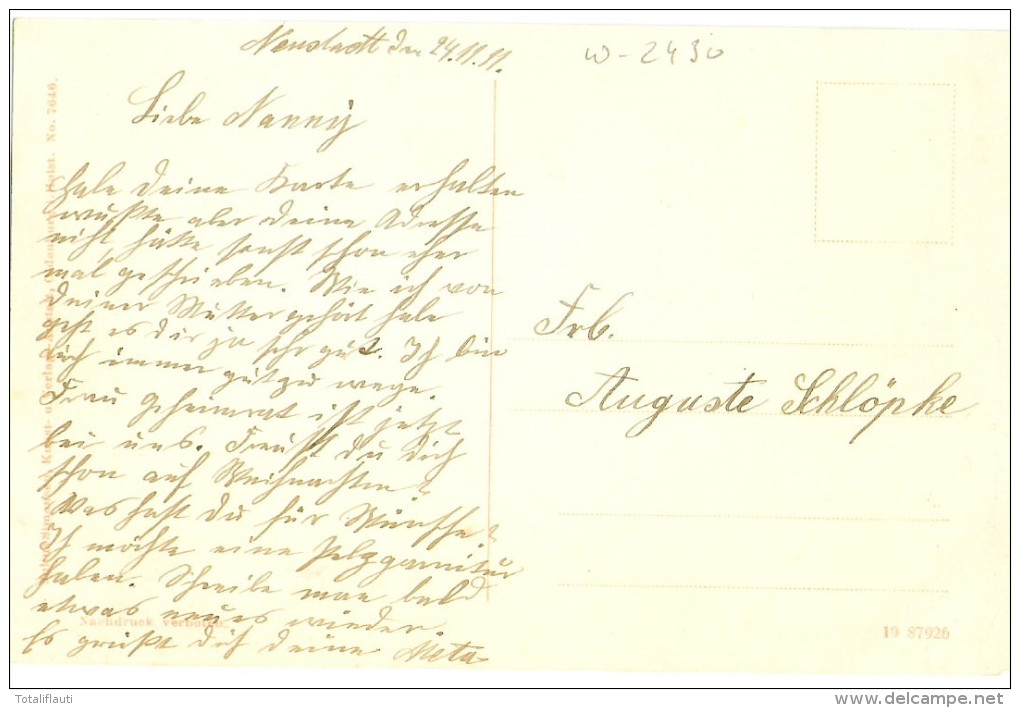 Neustadt den 24.11.11.
W-2430
Liebe Nanny
Habe deine Karte erhalten
wußte aber deine Adresse
nicht, hätte sonst schon eher
mal geschrieben. Wie ich von
deiner Mutter gehört habe
geht es dir ja sehr gut. Ich bin
auch immer gut zu wege.
Frau Geheimrat ist jetzt
bei uns. Freust du dich
schon auf Weihnachten?
Was hast du für Wünsche?
Ich möchte eine Pelzgarnitur
haben. Schreibe man bald
etwas neues wieder.
Es grüßt dich deine Meta
Frl.
Auguste Schlöpke
No. 7646.
Nachdruck verboten.
19 87926
Totaliflauti
www.delcampe.net